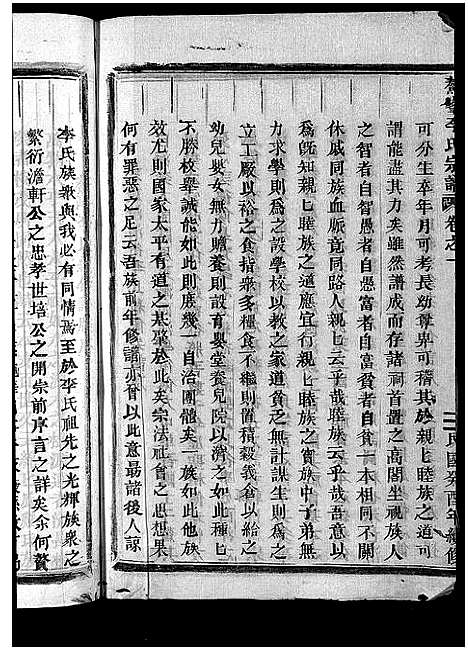 李氏宗譜 卷之一
民國癸酉年續修
可分生卒年月可考長幼尊界可稽其於親親睦族之道可
謂能盡其力矣雖然譜成而存諸祠首置之高閣坐視族人
之智者自智愚者自愚富者自富貧者自貧一本相關
休戚同族血脈竟同路人親親云乎哉睦族云乎哉吾儕
爲旣知親親睦族之道應宜行親親之實族中子弟無
力求學則爲之設學校以教之家道貧乏無計謀生則爲之
立工厰以裕之食指衆多糧食不繼則置積穀義倉以給之
幼兒嬰女無力贍養則設育嬰堂養兒院以濟之如此種種
不勝枚舉誠能如此則庶幾一自治團體矣一族如是他族
效尤則國家太平有道之基肇於此矣宗法社會之思想果
何有罪惡之足云吾族前年修譜亦曾以此意最諸後人諒
李氏族衆與我必有同情焉至於李氏祖先之光輝族衆之
繁衍澹軒公之忠孝世培公之開宗前序言之詳矣余何贅